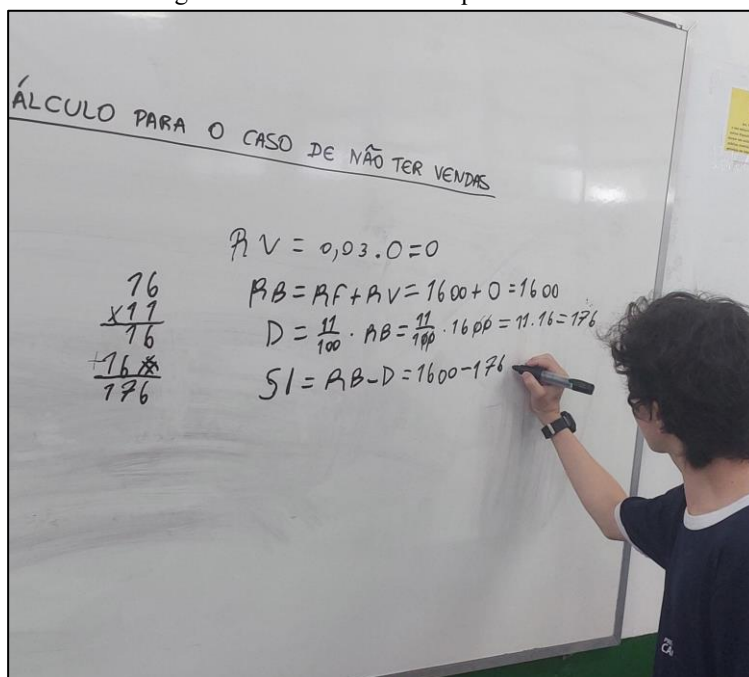 ÁLCULO PARA O CASO DE NÃO TER VENDAS
RV = 0,03 . 0 = 0
RB = RF + RV = 1600 + 0 = 1600
D = 11/100 . RB = 11/100 . 1600 = 11.16 = 176
Sl = RB - D = 1600 - 176
16
x11
16
+16x
176
CA